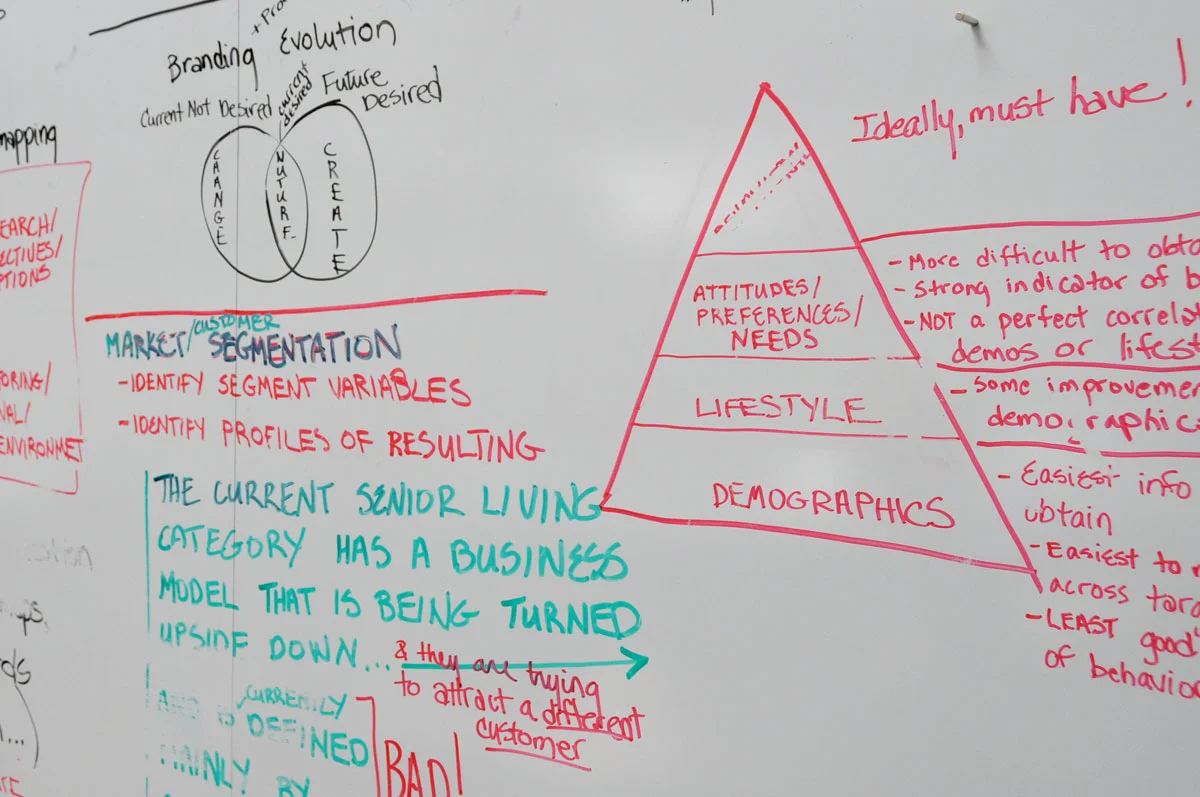 Branding Evolution
Current Not Desired
current desired
Future Desired
CHANGE
NUTURE
CREATE
mapping
EARCH/
ECTIVES/
PTIONS
ORING/
NAL/
ENVIRONMET
MARKET/CUSTOMER SEGMENTATION
-IDENTIFY SEGMENT VARIABLES
-IDENTIFY PROFILES OF RESULTING
THE CURRENT SENIOR LIVING
CATEGORY HAS A BUSINESS
MODEL THAT IS BEING TURNED
UPSIDE DOWN...
& they are trying
to attract a different
customer
AND IS CURRENTLY
DEFINED
MAINLY BY
BAD!
Ideally, must have!
ATTITUDES/
PREFERENCES/
NEEDS
LIFESTYLE
DEMOGRAPHICS
- More difficult to obta
- Strong indicator of b
- NOT a perfect correlat
demos or lifest
- Some improvemen
demographic
- Easiest info
obtain
- Easiest to
across targ
- LEAST good
of behavior